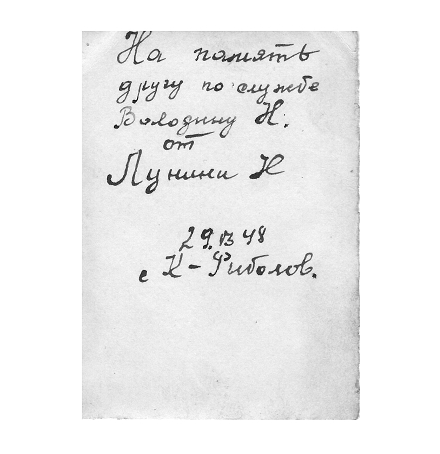 На память
другу по службе
Володину Н.
от
Лунини Н
29. 48
с К-Риболов.